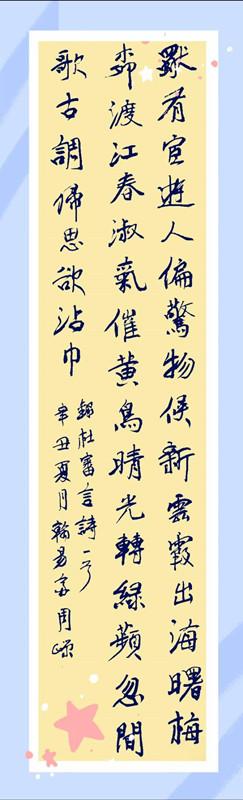 獨有宦遊人偏驚物候新雲霞出海曙梅
桺渡江春淑氣催黃鳥晴光轉綠蘋忽聞
歌古調歸思欲沾巾
錄杜審言詩一首
辛丑夏月易齋周